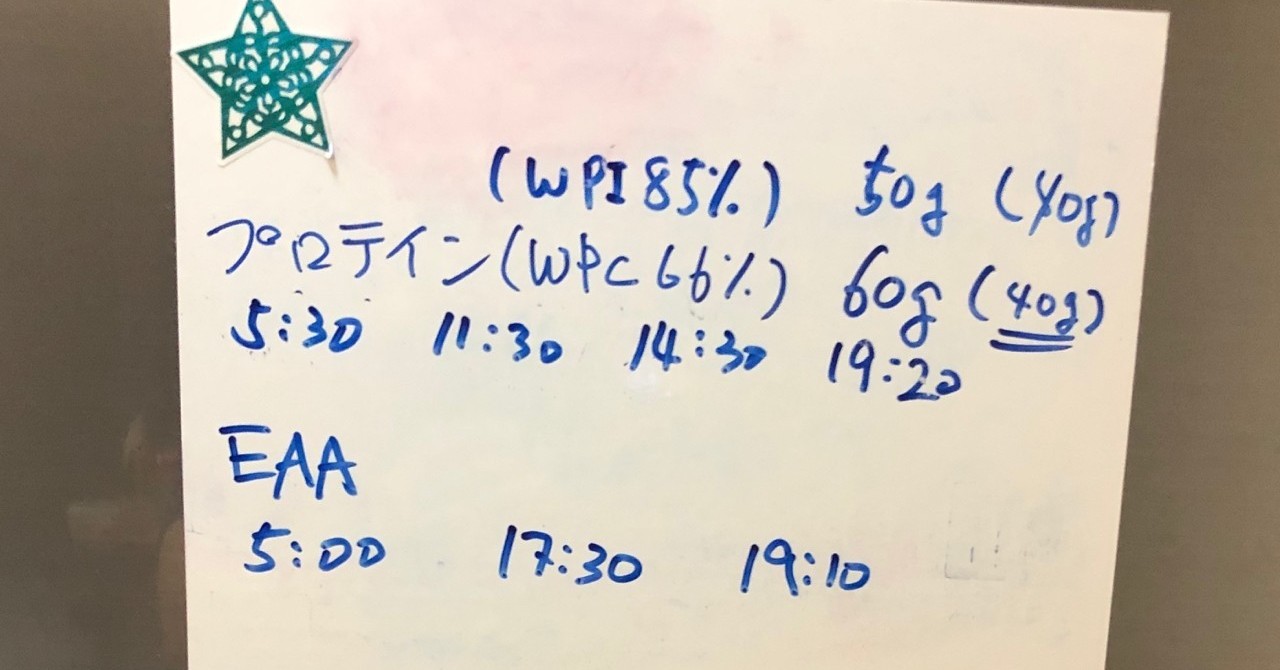 (WPI 85%) 50g (40g)
プロテイン(WPC 66%) 60g (40g)
5:30 11:30 14:30 19:20
EAA
5:00 17:30 19:10